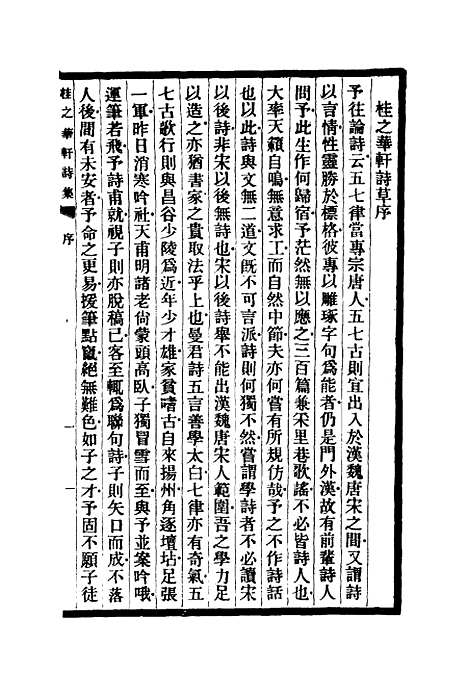 桂之華軒詩草序
予往論詩云五七律當專宗唐人五七古則宜出入於漢魏唐宋之間又謂詩
以言情性靈勝於標格彼專以雕琢字句爲能者仍是門外漢故有前輩詩人
問予此生作何歸宿予茫然無以應之三百篇兼采里巷歌謠不必皆詩人也
大率天籟自鳴無意求工而自然中節夫亦何嘗有所規仿哉予之不作詩話
也以此詩與文無二道文旣不可言派詩則何獨不然嘗謂學詩者不必讀宋
以後詩非宋以後無詩也宋以後詩舉不能出漢魏唐宋人範圍吾之學力足
以造之亦猶書家之貴取法乎上也曼君詩五言善學太白七律亦有奇氣五
七古歌行則與昌谷少陵爲近年少才雄家貧嗜古自來揚州角逐壇坫足張
一軍昨日消寒吟社天甫明諸老尙蒙頭高臥子獨冒雪而至與予並案吟哦
運筆若飛予詩甫就視子則亦脫稿已客至輒爲聯句詩子則矢口而成不落
人後間有未安者予命之更易援筆點竄絕無難色如子之才予固不願子徒
桂之華軒詩集
序
一